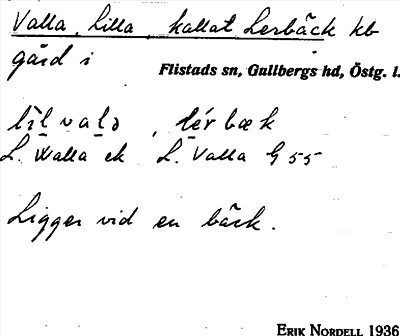 Valla, Lilla, kallat Lerbäck kb
gård i
Flistads sn, Gullbergs hd, Östg. l.
lìl vala, lér bæk
L. Walla ek L. Valla G 55
Ligger vid en bäck.
ERIK NORDELL 1936